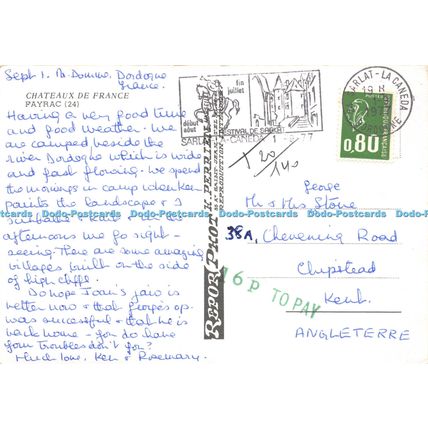 Sept 1. Dordogne
France.
CHATEAUX DE FRANCE
PAYRAC (24)
Having a very good time
and good weather. We
are camped beside the
river Dordogne which is wide
and fast flowing. We spend
the mornings in camp when Ken
paints the landscape & I
sunbathe
afternoons we go sight-
seeing. There are some amazing
villages built on the side
of high cliffs.
Do hope Joan's jaw is
better now & that George's op.
was successful & that he is
back home - you do have
your troubles don't you?
Much love, Ken & Rosemary.
REPOR PHOT H. PERRIEN
début
août
fin
juillet
FESTIVAL DE SARLAT
SARLAT-LA CANEDA
19 H
DORDOGNE
0,80
T 20/140
George
Mr & Mrs Stone
38A, Chevening Road
Chipstead
Kent.
ANGLETERRE
16P TO PAY
Dodo-Postcards Dodo-Postcards Dodo-Postcards Dodo-Postcards